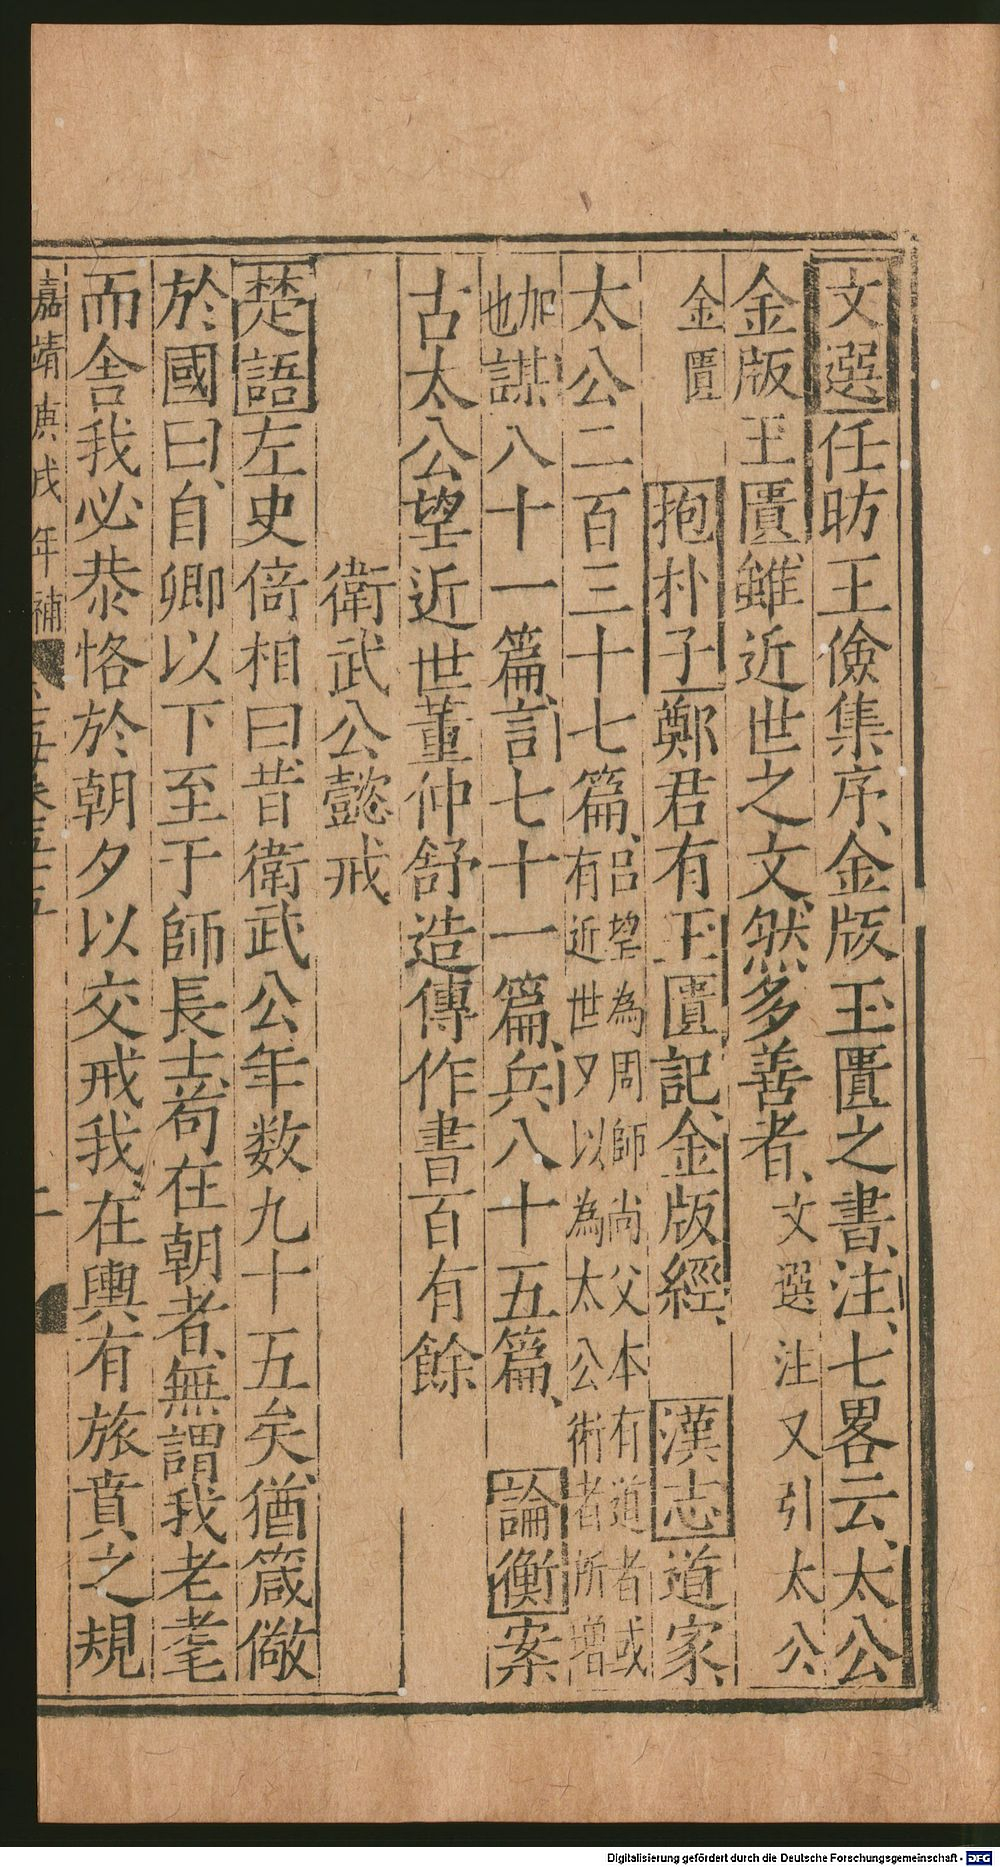 文選任昉王儉集序金版玉匱之書注七畧云太公
金版玉匱雖近世之文然多善者文選注又引太公
金匱　抱朴子鄭君有玉匱記金版經　漢志道家
太公二百三十七篇呂望為周師尚父本有道者或
有近世又以為太公術者所增
加
也謀八十一篇言七十一篇兵八十五篇　論衡案
古太公望近世董仲舒造傳作書百有餘
衛武公懿戒
楚語左史倚相曰昔衛武公年數九十五矣猶箴儆
於國曰自卿以下至于師長士苟在朝者無謂我老耄
而舍我必恭恪於朝夕以交戒我在輿有旅賁之規
嘉靖庚戌年補
Digitalisierung gefördert durch die Deutsche Forschungsgemeinschaft - DFG